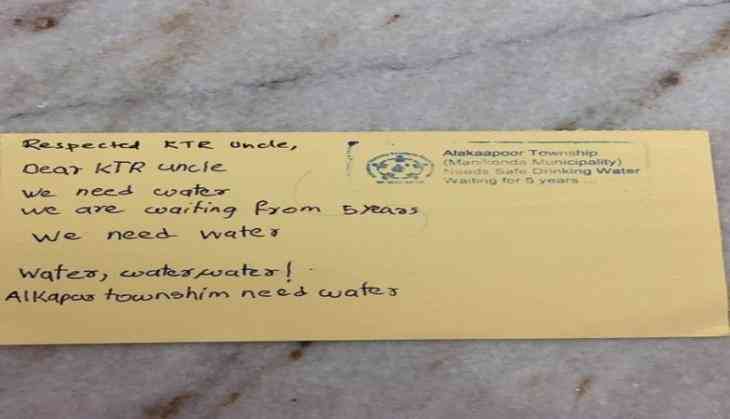 Respected KTR uncle,
Dear KTR uncle
we need water
we are waiting from 5 years
We need water
Water, water, water!
Alkapar townshim need water
Alakaapoor Township
(Manikonda Municipality)
Needs Safe Drinking Water
Waiting for 5 years ...